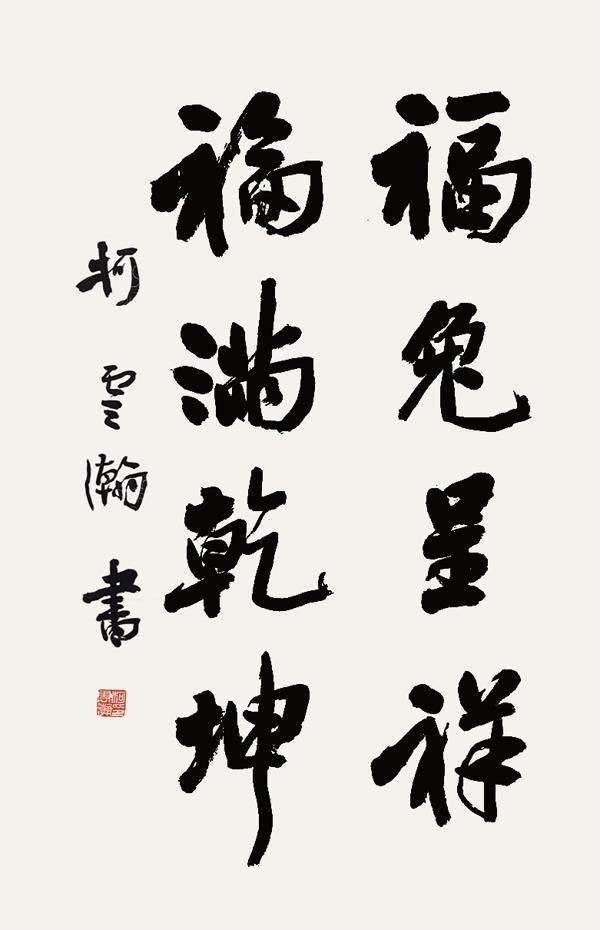 福兔呈祥
福滿乾坤
柯雲瀚書